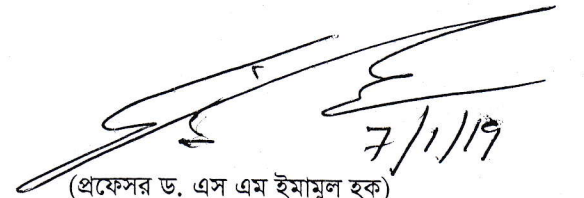 7/1/19
(প্রফেসর ড. এস এম ইমামুল হক)